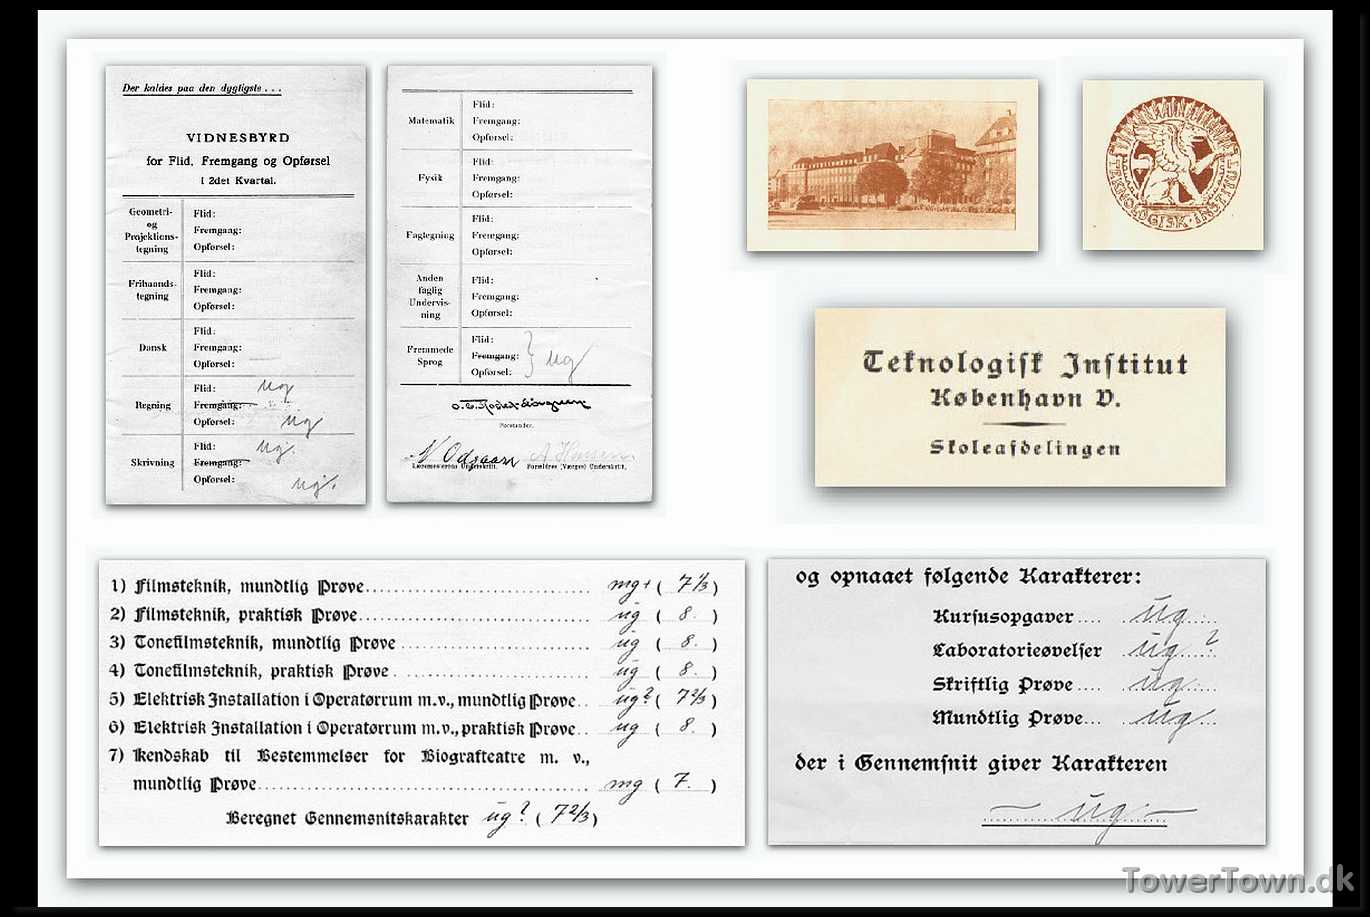 Der kaldes paa den dygtigste . . .
VIDNESBYRD
for Flid, Fremgang og Opførsel
i 2det Kvartal.
Geometri-
og
Projektions-
tegning
Flid:
Fremgang:
Opførsel:
Frihaands-
tegning
Flid:
Fremgang:
Opførsel:
Dansk
Flid:
Fremgang:
Opførsel:
Regning
Flid: ug
Fremgang:
Opførsel: ug
Skrivning
Flid: ug.
Fremgang:
Opførsel: ug.
Matematik
Flid:
Fremgang:
Opførsel:
Fysik
Flid:
Fremgang:
Opførsel:
Fagtegning
Flid:
Fremgang:
Opførsel:
Anden
faglig
Undervis-
ning
Flid:
Fremgang:
Opførsel:
Fremmede
Sprog
Flid:
Fremgang:
Opførsel:
ug
Forstander.
N Odgaard A Hansen
Læremesterens Underskrift. Forældres (Værges) Underskrift.
TEKNOLOGISK · INSTITUT
Teknologisk Institut
København V.
Skoleafdelingen
1) Filmsteknik, mundtlig Prøve.............................. mg+ ( 7 1/3 )
2) Filmsteknik, praktisk Prøve.............................. ug ( 8. )
3) Tonefilmsteknik, mundtlig Prøve ......................... ug ( 8. )
4) Tonefilmsteknik, praktisk Prøve ......................... ug ( 8. )
5) Elektrisk Installation i Operatørrum m.v., mundtlig Prøve.. ug? ( 7 2/3 )
6) Elektrisk Installation i Operatørrum m.v., praktisk Prøve.. ug ( 8. )
7) Kendskab til Bestemmelser for Biografteatre m. v.,
mundtlig Prøve.............................................. mg ( 7. )
Beregnet Gennemsnitskarakter ug? ( 7 2/3 )
og opnaaet følgende Karakterer:
Kursusopgaver .... ug
Laboratorieøvelser ug?
Skriftlig Prøve .... ug
Mundtlig Prøve... ug
der i Gennemsnit giver Karakteren
— ug. —
TowerTown.dk